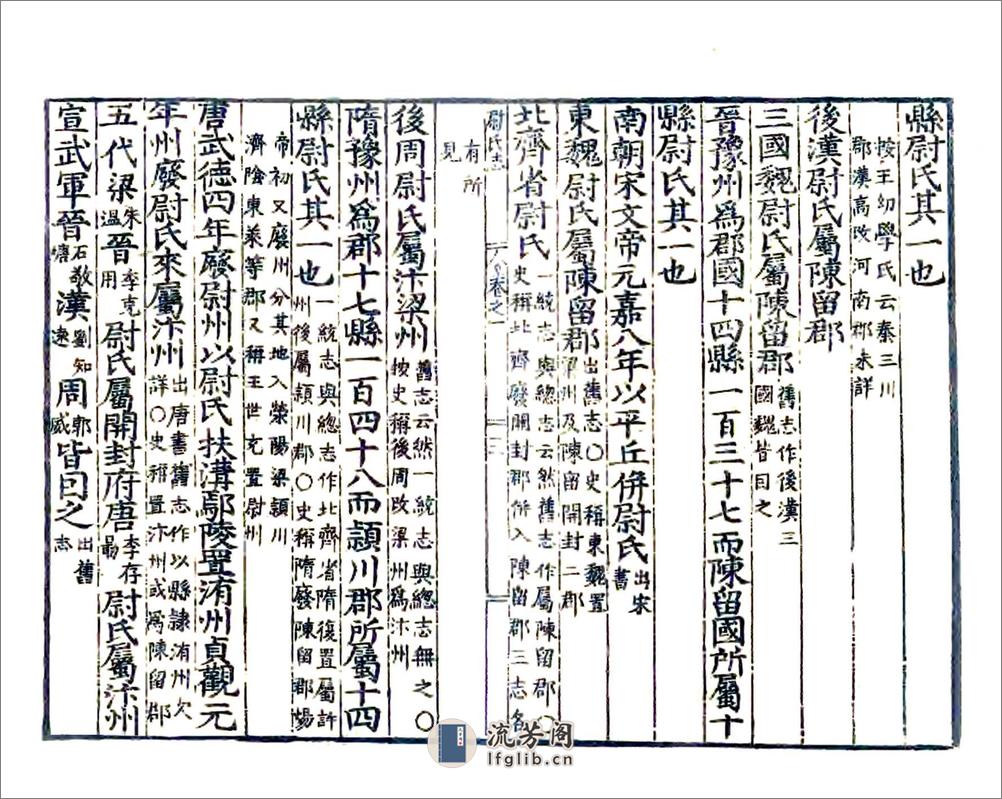 縣尉氏其一也
按王幼學氏云秦三川
郡漢高改河南郡未詳
後漢尉氏屬陳留郡
三國魏尉氏屬陳留郡舊志作後漢三國魏皆因之
晉豫州為郡國十四縣一百三十七而陳留國所屬十
縣尉氏其一也
南朝宋文帝元嘉八年以平丘併尉氏出宋書
東魏尉氏屬陳留郡出舊志〇史稱東魏置梁州及陳留開封二郡
北齊省尉氏一統志與總志云然舊志作屬陳留郡〇史稱北齊廢開封郡併入陳留郡三志各
尉氏志 卷之一 三
有所
見
後周尉氏屬汴梁州舊志云然一統志與總志無之〇按史稱後周改梁州為汴州
隋豫州為郡十七縣一百四十八而頴川郡所屬十四
縣尉氏其一也一統志與總志作北齊省隋復置屬許州後屬頴川郡〇史稱隋廢陳留郡煬
帝初又廢州分其地入滎陽梁頴川
濟陰東萊等郡又稱王世充置尉州
唐武德四年廢尉州以尉氏扶溝鄢陵置洧州貞觀元
年州廢尉氏來屬汴州出唐書舊志作以縣隷洧州欠詳〇史稱置汴州或為陳留郡
五代梁朱溫晉李克用尉氏屬開封府唐李存勗尉氏屬汴州
宣武軍晉石敬瑭漢劉知遠周郭威皆因之出舊志
流芳阁
lfglib.cn